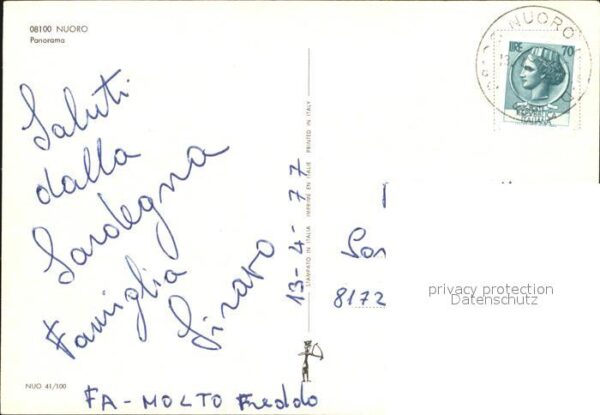 08100 NUORO
Panorama
Saluti
dalla
Sardegna
Famiglia
13-4-77
STAMPATO IN ITALIA IMPRIMÉ EN ITALIE PRINTED IN ITALY
NUORO
LIRE 70
8172
privacy protection
Datenschutz
NUO 41/100
FA-MOLTO FREDDO